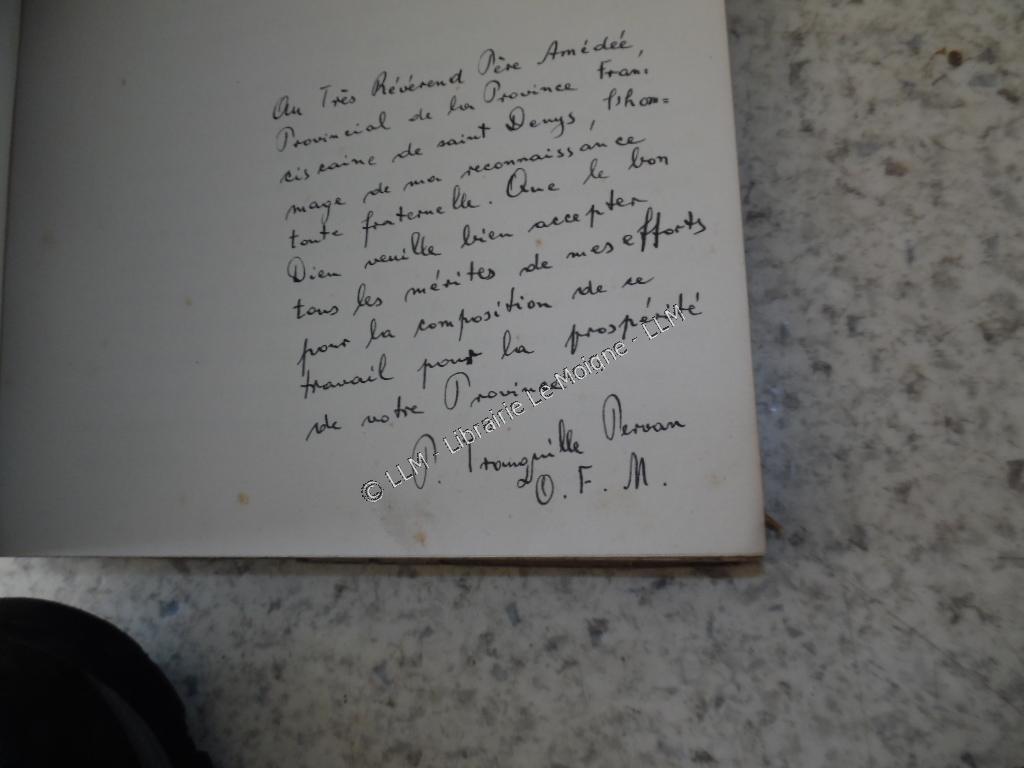 Au Très Révérend Père Amédée,
Provincial de la Province Fran-
ciscaine de saint Denys, l'hom=
mage de ma reconnaissance
toute fraternelle. Que le bon
Dieu veuille bien accepter
tous les mérites de mes efforts
pour la composition de ce
travail pour la prospérité
de votre Province
P. Tranquille Pervan
O. F. M.
© LLM - Librairie Le Moigne - LLM